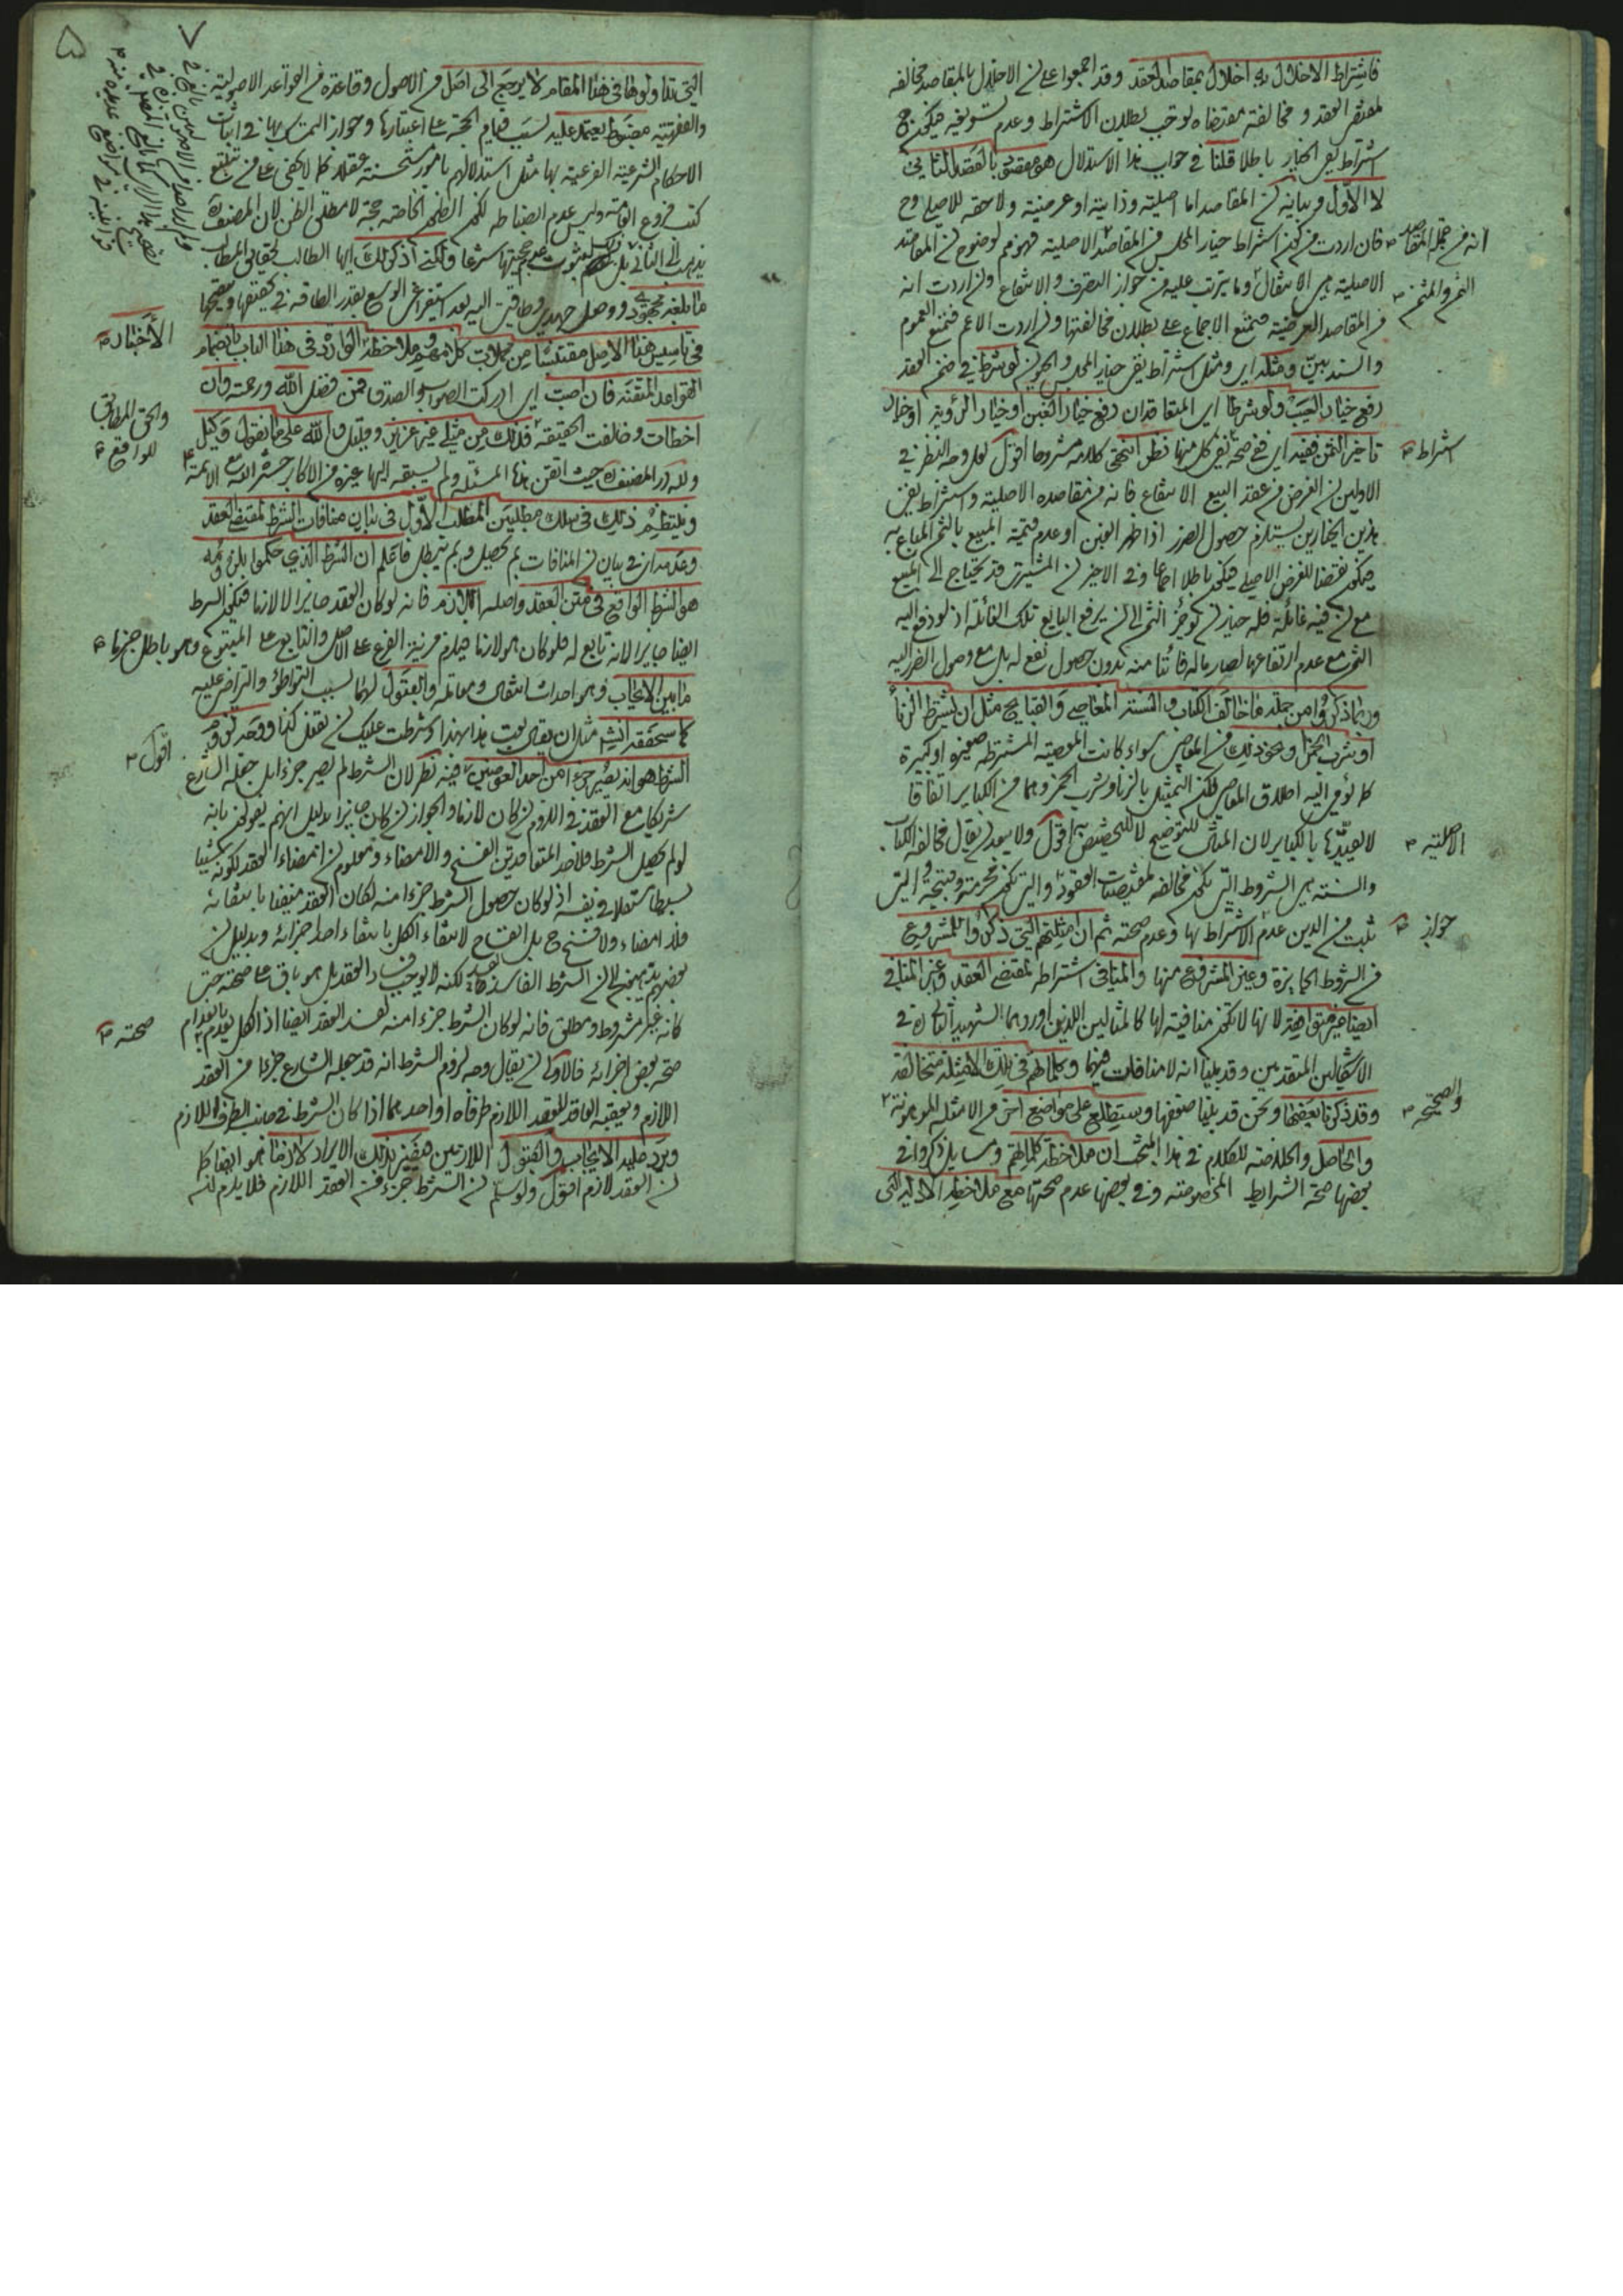 فاشتراط الاخلال به اخلال بمقاصد العقد وقد اجمعوا على ان الاخلال بالمقاصد مخالفه
لمقتضى العقد و مخالفة مقتضاه يوجب بطلان الاشتراط وعدم تسويغه فيكون ح
اشتراط نفى الخيار باطلا قلنا فى جواب هذا الاستدلال هو مقصود بالقصد الثانى
لا الاول وبيانه ان المقاصد اما اصلية وذاتية او عرضية ولاحقة للاصلى وح
فان اردت من كون اشتراط خيار المجلس من المقاصد الاصلية فهو مم لوضوح ان المقاصد
انه من جملة المقاصد
الاصلية هى الانتقال وما يترتب عليه من جواز التصرف والانتفاع وان اردت انه
الثمن والمثمن
من المقاصد العرضية فنمنع الاجماع على بطلان مخالفتها وان اردت الاعم فنمنع العموم
والسند بين ومثله اى ومثل اشتراط نفى خيار المجلس والحيوان لو شرطا فى ضمن العقد
رفع خيار العيب ولو شرطا اى المتعاقدان رفع خيار الغبن او خيار الرؤية او خيار
تاخير الثمن ففيه اى فى صحة نفى كل منها نظر انتهى كلامه مشروحا اقول لعل وجه النظر فى
اشتراط
الاولين ان الغرض من عقد البيع الانتفاع فانه من مقاصده الاصلية واشتراط نفى
هذين الخيارين يستلزم حصول الضرر اذا ظهر الغبن او عدم قيمة المبيع بالثمن المباع به
فيكون نقضا للغرض الاصلى فيكون باطلا اجماعا وفى الاخير ان المشترى قد يحتاج الى المبيع
مع ان فيه غائلة فله حينئذ ان يؤخر الثمن الى ان يرفع البايع تلك الغائلة اذ لو دفع اليه
الثمن مع عدم ارتفاعها لصار ماله فائتا منه بدون حصول نفع له بل مع وصول الضرر اليه
وربما ذكروا من جملة ما خالف الكتاب والسنة المعاصى والقبايح مثل ان يشترط الزنا
او شرب الخمر ونحو ذلك من المعاصى سواء كانت المعصية المشترطة صغيرة او كبيرة
كما يؤمى اليه اطلاق المعاصى فكون التمثيل بالزنا وشرب الخمر وهما من الكباير اتفاقا
لا يقيدها بالكباير لان المثال للتوضيح لا للتخصيص اقول ولا يبعد ان يقال مخالفة الكتاب
الاصلية
والسنة هى الشروط التى تكون مخالفة لمقتضيات العقود والتى تكون محرمة وقبيحة والتى
ثبت من الدين عدم الاشتراط بها وعدم صحته ثم ان امثلتهم التى ذكروا للمشروع
جواز
من الشروط الجايزة وغير المشروع منها والمنافى اشتراطه لمقتضى العقد وغير المنافى
ايضا غير متوافقة لانها لا تكون منافية لها كالمثالين اللذين اوردهما الشهيد الثانى ره فى
الاشكالين المتقدمين وقد بينا انه لا منافات فيهما وكلماتهم فى تلك الامثلة متخالفة
وقد ذكرنا بعضها ونحن قد بينا ضعفها وستطلع على مواضع اخر من الامثلة الموهونة
والصحيحة
والحاصل والخلاصة للكلام فى هذا المبحث ان ملاحظة كلماتهم ومسايل ذكروا فى
بعضها صحة الشرايط المخصوصة وفى بعضها عدم صحتها مع ملاحظة الادلة التى
٥
التى تداولوها فى هذا المقام لا يرجع الى اصل من الاصول وقاعدة من القواعد الاصولية
والفقهية مضبوط يعتمد عليه لسبب قيام الحجة على اعتبارها وجواز التمسك بها فى اثبات
الاحكام الشرعية الفرعية بها مثل استدلالهم بامور مستحسنة عقلا كما لا يخفى على من تتبع
كتب فروع القوم وليس عدم انضباطه لكون الظنون الخاصة حجة لا مطلق الظن لان المصنف ره
يذهب الى الثانى بل لثبوت عدم حجيتها شرعا ولكنى اذكر لك ايها الطالب لحقايق المطالب
ما بلغه مجهودى ووصل جهدى وطاقتى اليه بعد استفراغى الوسع بقدر الطاقة فى كيفيتها وتنقيحها
فى تاسيس هذا الاصل مقتبسا من مجملات كلامهم وملاحظة الواردة فى هذا الباب بانضمام
الاخبار
القواعد المتقنة فان اصبت اى ادركت الصواب والصدق فمن فضل الله ورحمته وان
والحق المطابق
للواقع
اخطات وخالفت الحقيقة فذلك من مثلى غير عزيز وقليل والله على ما نقول وكيل
ولله در المصنف ره حيث اتقن هذا المسئلة ولم يسبقه اليها غيره من الاكابر حشره الله مع الائمة
وينتظم ذلك فى سلك مطلبين المطلب الاول فى بيان منافات الشرط لمقتضى العقد
وعدمه اى فى بيان ان المنافات بم تحصل وبم تبطل فاعلم ان الشرط الذى حكموا بلزومه
هو الشرط الواقع فى متن العقد واصله اللازم فانه لو كان العقد جايزا لا لازما فيكون الشرط
ايضا جايزا لانه تابع له فلو كان هو لازما فيلزم مزية الفرع على الاصل والتابع على المتبوع وهو باطل جزما
ما بين الايجاب وهو احداث انتقال ومعاملة والقبول لهما بسبب التواطؤ والتراضى عليه
كما سنحققه انش مثل ان يقال بعت هذا بهذا وشرطت عليك ان تفعل كذا ووجه لزوم
الشرط هو انه يصير جزءا من احد العوضين فيه نظر لان الشرط لم يصر جزءا بل جعله الشارع
اقول
شريكا مع العقد فى اللزوم ان كان لازما والجواز ان كان جايزا بدليل انهم يقولون بانه
لو لم يحصل الشرط فلاحد المتعاقدين الفسخ والامضاء ومعلوم ان امضاء العقد لكونه شيئا
بسيطا مستقلا فى نفسه اذ لو كان حصول الشرط جزءا منه لكان العقد منتفيا بانتفائه
فلا امضاء ولا فسخ ح بل انفساخ لانتفاء الكل بانتفاء احد اجزائه وبدليل ان
بعضهم يذهبون الى ان الشرط الفاسد فاسد لكنه لا يوجب فساد العقد بل هو باق على صحته حتى
كانه غير مشروط ومطلق فانه لو كان الشرط جزءا منه لفسد العقد ايضا اذ الكل ينعدم بانعدام
صحته
صحة بعض اجزائه فالاولى ان يقال وجه لزوم الشرط انه قد جعله الشارع جزءا من العقد
اللازم ويعقبه العاقد للعقد اللازم طرفاه او احدهما اذا كان الشرط فى جانب الطرف اللازم
ويرد عليه الايجاب والقبول اللازمين فيصير بذلك الايراد لازما هو ايضا كما
ان العقد لازم اقول ولو سلم ان الشرط جزء من العقد اللازم فلا يلزم انه